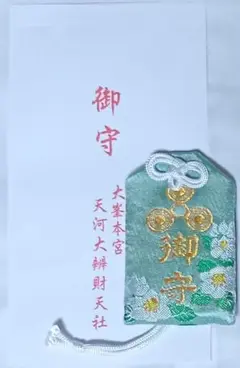 御守
大峯本宮
天河大辨財天社
御守